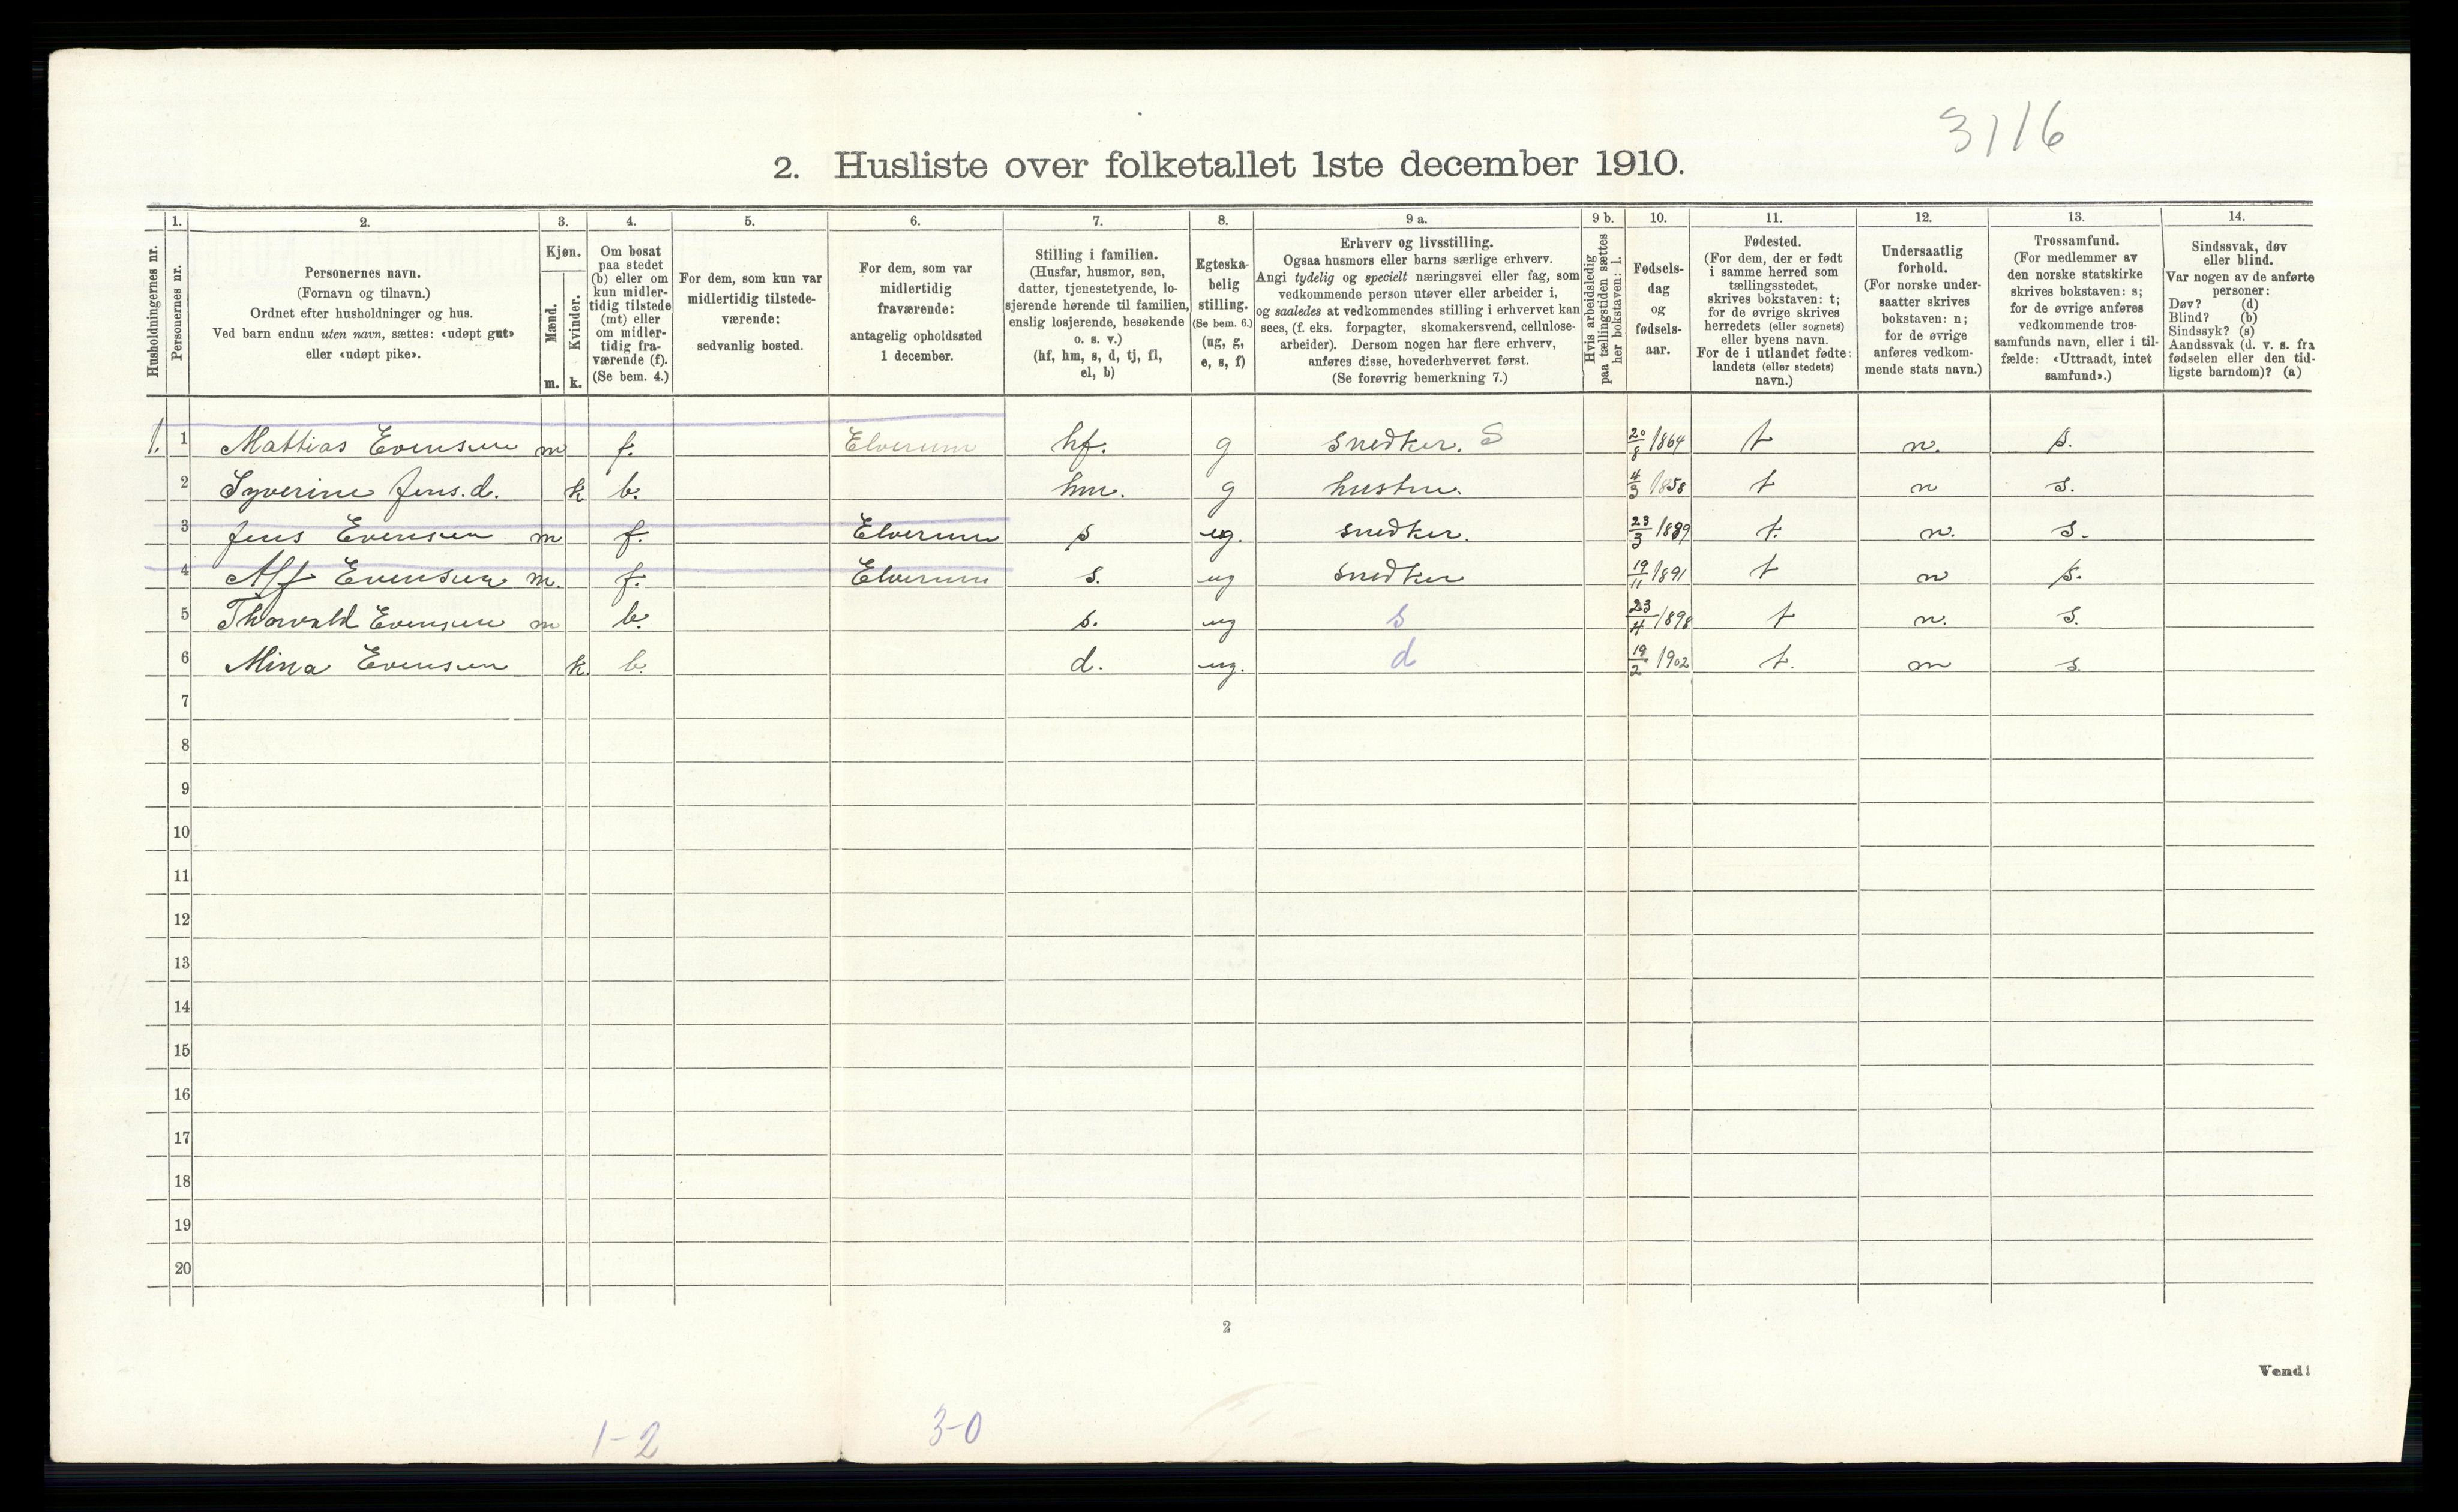 3116
2. Husliste over folketallet 1ste december 1910.
1. 2. 3. 4. 5. 6. 7. 8. 9 a. 9 b. 10. 11. 12. 13. 14.
Husholdningernes nr.
Personernes nr.
Personernes navn.
(Fornavn og tilnavn.)
Ordnet efter husholdninger og hus.
Ved barn endnu uten navn, sættes: «udøpt gut»
eller «udøpt pike».
Kjøn.
Mænd.
Kvinder.
m. k.
Om bosat
paa stedet
(b) eller om
kun midler-
tidig tilstede
(mt) eller
om midler-
tidig fra-
værende (f).
(Se bem. 4.)
For dem, som kun var
midlertidig tilstede-
værende:
sedvanlig bosted.
For dem, som var
midlertidig
fraværende:
antagelig opholdssted
1 december.
Stilling i familien.
(Husfar, husmor, søn,
datter, tjenestetyende, lo-
sjerende hørende til familien,
enslig losjerende, besøkende
o. s. v.)
(hf, hm, s, d, tj, fl,
el, b)
Egteska-
belig
stilling.
(Se bem. 6.)
(ug, g,
e, s, f)
Erhverv og livsstilling.
Ogsaa husmors eller barns særlige erhverv.
Angi tydelig og specielt næringsvei eller fag, som
vedkommende person utøver eller arbeider i,
og saaledes at vedkommendes stilling i erhvervet kan
sees, (f. eks. forpagter, skomakersvend, cellulose-
arbeider). Dersom nogen har flere erhverv,
anføres disse, hovederhvervet først.
(Se forøvrig bemerkning 7.)
Hvis arbeidsledig
paa tællingstiden sættes
her bokstaven: l.
Fødsels-
dag
og
fødsels-
aar.
Fødested.
(For dem, der er født
i samme herred som
tællingsstedet,
skrives bokstaven: t;
for de øvrige skrives
herredets (eller sognets)
eller byens navn.
For de i utlandet fødte:
landets (eller stedets)
navn.)
Undersaatlig
forhold.
(For norske under-
saatter skrives
bokstaven: n;
for de øvrige
anføres vedkom-
mende stats navn.)
Trossamfund.
(For medlemmer av
den norske statskirke
skrives bokstaven: s;
for de øvrige anføres
vedkommende tros-
samfunds navn, eller i til-
fælde: «Uttraadt, intet
samfund».)
Sindssvak, døv
eller blind.
Var nogen av de anførte
personer:
Døv? (d)
Blind? (b)
Sindssyk? (s)
Aandssvak (d. v. s. fra
fødselen eller den tid-
ligste barndom)? (a)
1. 1 Mattias Evensen m f. Elverum hf. g snedker. S 20/8 1864 t n. s.
2 Syverine Jens.d. k b. hm. g hustru. 4/3 1858 t n s.
3 Jens Evensen m f. Elverum s ug. snedker. 23/3 1889 t. n. s.
4 Alf Evensen m. f. Elverum s. ug snedker 19/11 1891 t n s.
5 Thorvald Evensen m b. s. ug s 23/4 1898 t n. s.
6 Mina Evensen k. b. d. ug. d 19/2 1902 t. n s.
7
8
9
10
11
12
13
14
15
16
17
18
19
20
2
Vend!
1-2 3-0